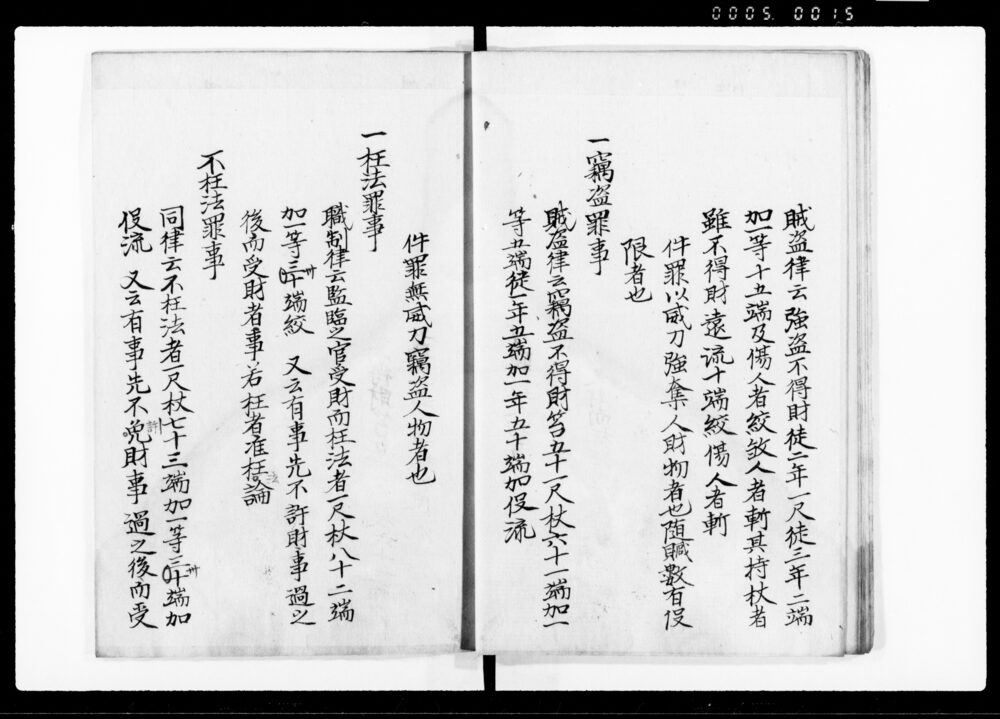 0005. 0015
賊盗律云強盗不得財徒二年一尺徒三年二端
加一等十五端及傷人者絞敓人者斬其持杖者
雖不得財遠流十端絞傷人者斬
件罪以威刀強奪人財物者也随贓數有伇
限者也
一竊盗罪事
賊盗律云竊盗不得財笞五十一尺杖六十一端加一
等五端徒一年五端加一年五十端加伇流
件罪無威刀竊盗人物者也
一枉法罪事
職制律云監臨之官受財而枉法者一尺杖八十二端
加一等三十端絞 又云有事先不許財事過之
後而受財者事若枉者准枉論
不枉法罪事
同律云不枉法者一尺杖七十三端加一等三十端加
伇流 又云有事先不免財事過之後而受